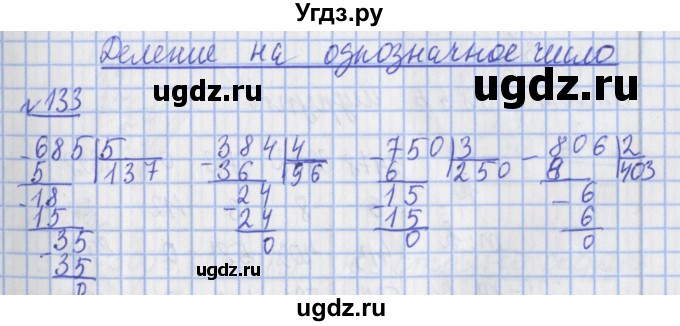 Угдз.ру
Деление на однозначное число
ugdz.ru ugdz.ru
№133
-685|5 -384|4 -750|3 -806|2
5 |137 36 |96 6 |250 8 |403
-18 -24 -15 -6
15 24 15 6
-35 0 0 0
35
0
ugdz.ru ugdz.ru
ugdz.ru